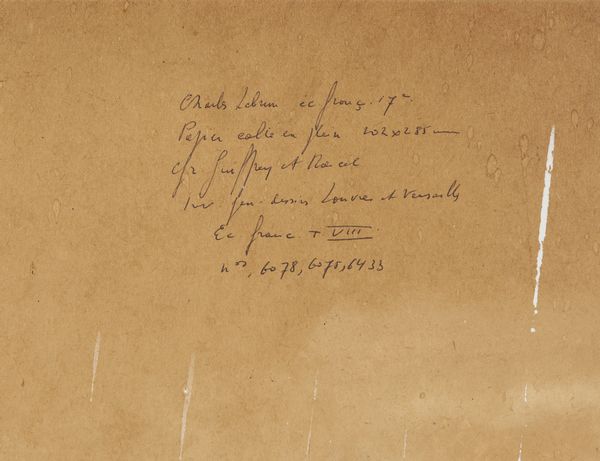 Charles Lebrun éc franç. 17e
Papier collé en plein 202x285 mm
Cfr. Guiffrey et Marcel
Inv. gen. dessins Louvre et Versailles
Ec franc T. VIII.
nos, 6078, 6075, 6433